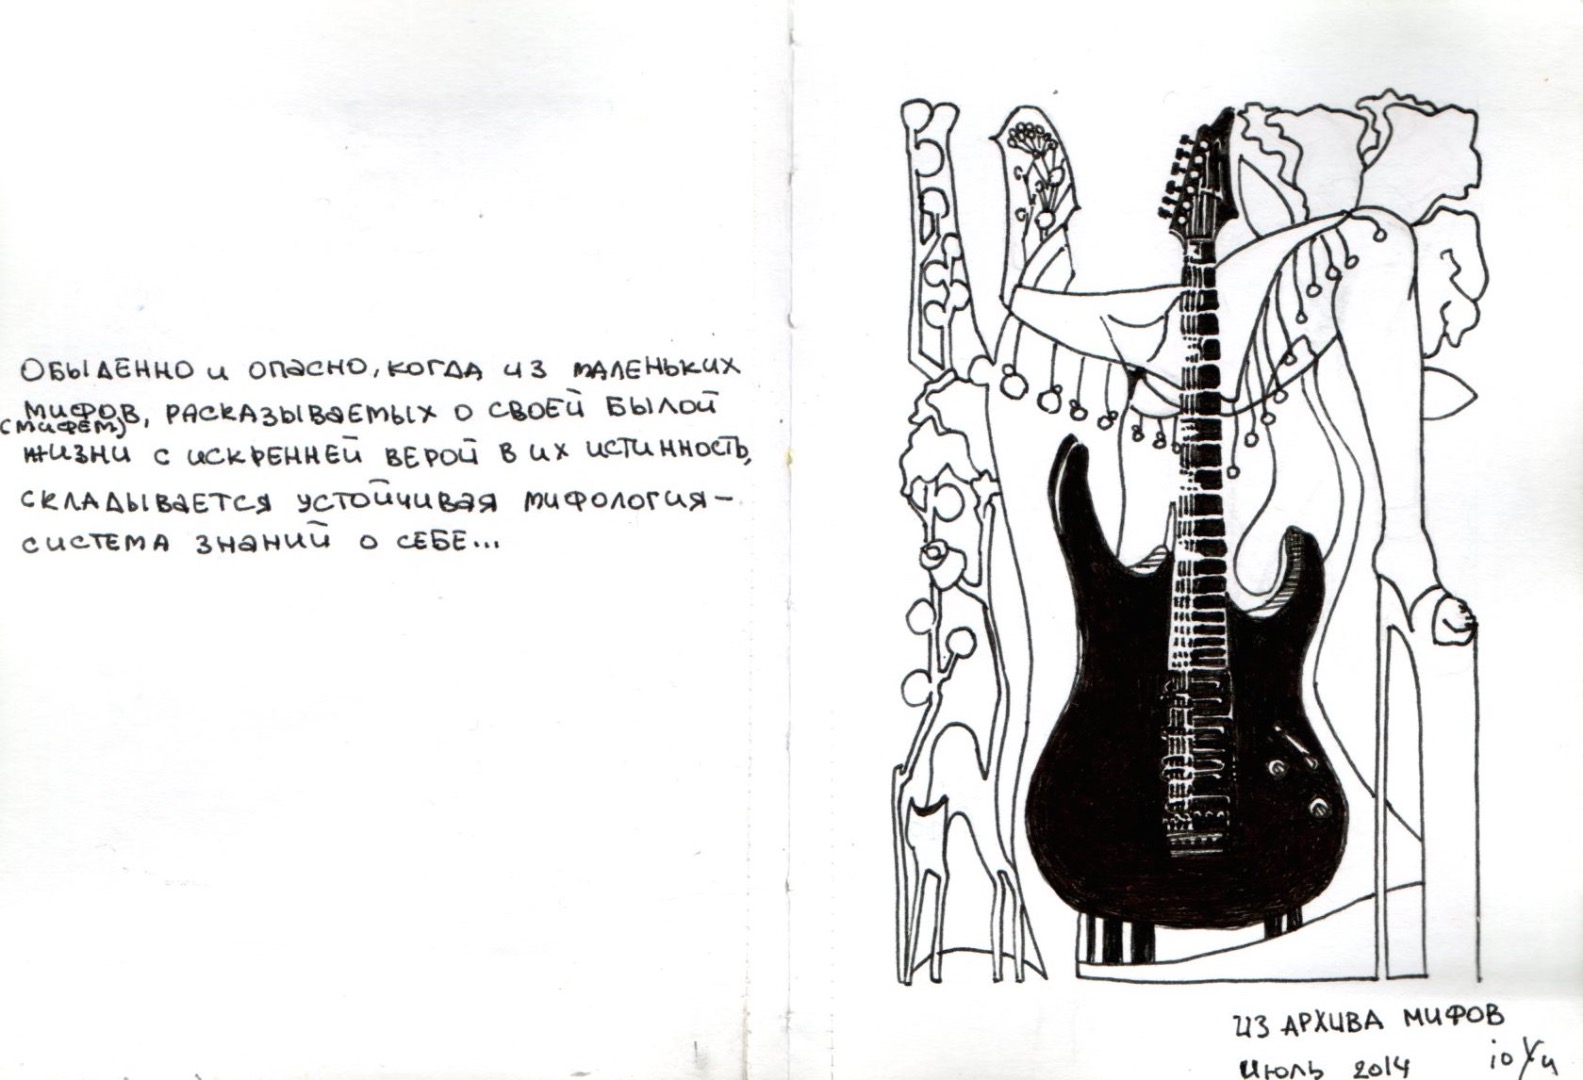 ОБЫДЕННО И ОПАСНО, КОГДА ИЗ МАЛЕНЬКИХ
МИФОВ, РАСКАЗЫВАЕМЫХ О СВОЕЙ БЫЛОЙ
(МИФЕМ)
ЖИЗНИ С ИСКРЕННЕЙ ВЕРОЙ В ИХ ИСТИННОСТЬ,
СКЛАДЫВАЕТСЯ УСТОЙЧИВАЯ МИФОЛОГИЯ –
СИСТЕМА ЗНАНИЙ О СЕБЕ...
ИЗ АРХИВА МИФОВ
ИЮЛЬ 2014